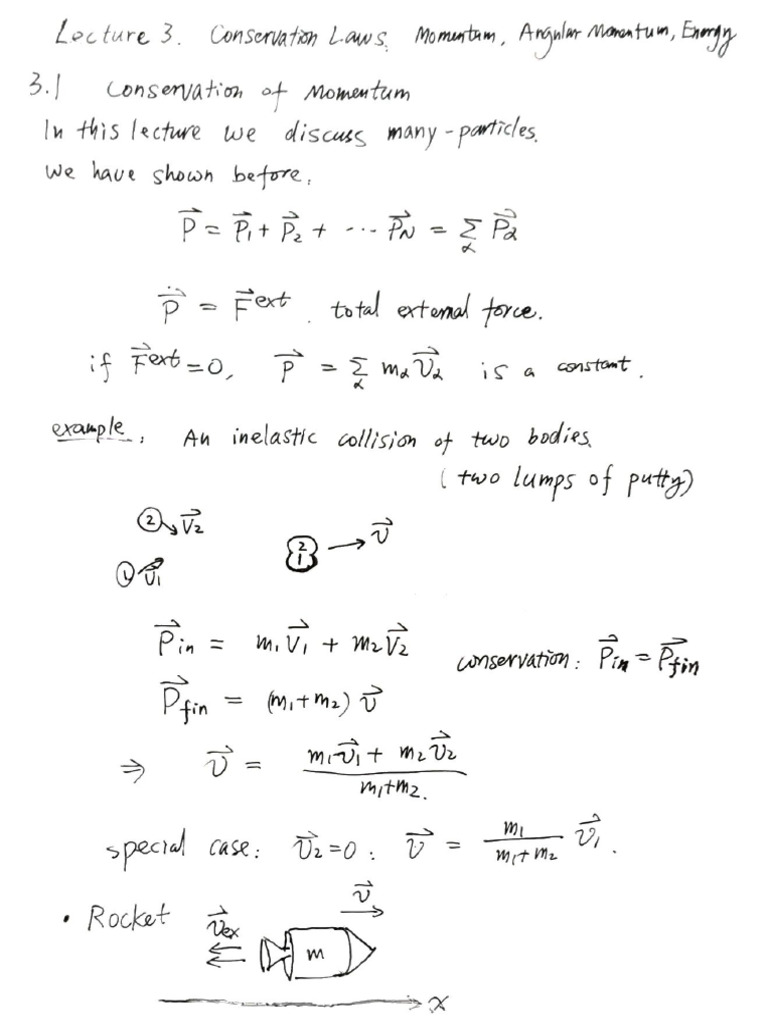 Lecture 3. Conservation Laws, Momentum, Angular Momentum, Energy
3.1 Conservation of Momentum
In this lecture we discuss many-particles.
We have shown before,
P⃗ = P⃗₁ + P⃗₂ + ⋯ P⃗_N = Σ_α P⃗_α
P⃗̇ = F⃗^ext. total external force.
if F⃗^ext = 0, P⃗ = Σ_α m_α v⃗_α is a constant.
example, An inelastic collision of two bodies.
(two lumps of putty)
② v⃗₂
① v⃗₁
2
1
v⃗
P⃗_in = m₁v⃗₁ + m₂v⃗₂
conservation: P⃗_in = P⃗_fin
P⃗_fin = (m₁+m₂) v⃗
⇒ v⃗ = (m₁v⃗₁ + m₂v⃗₂)/(m₁+m₂).
special case: v⃗₂=0: v⃗ = m₁/(m₁+m₂) v⃗₁.
• Rocket v⃗_ex
v⃗
m
x